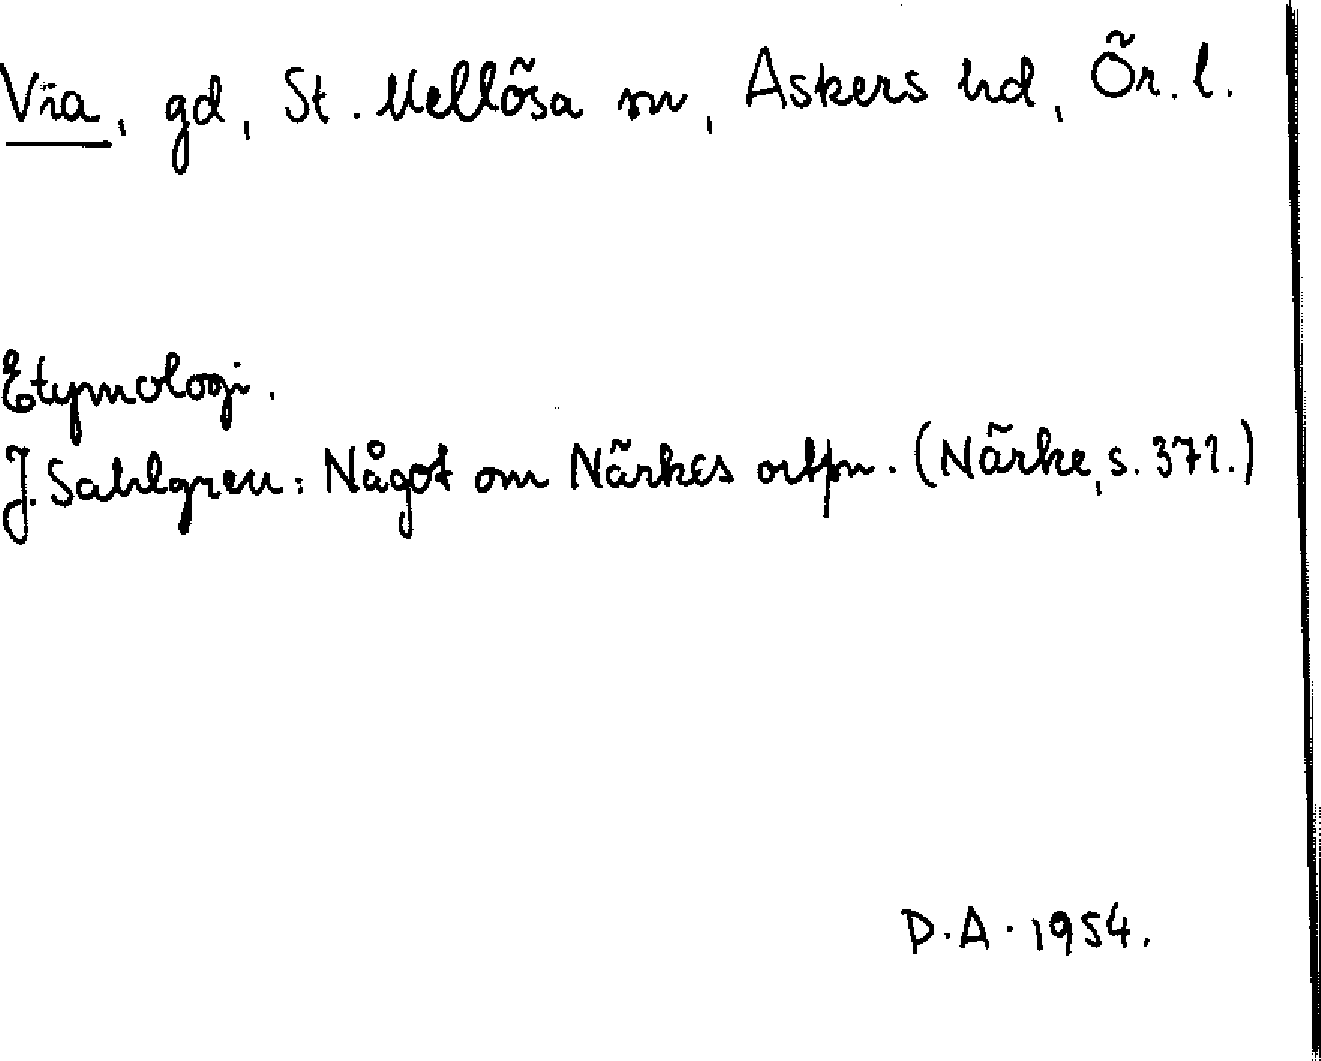 Via, gd, St. Mellösa sn, Askers hd, Ör. l.
Etymologi.
J. Sahlgren: Något om Närkes ortpn. (Närke, s. 371.)
D. A. 1954.